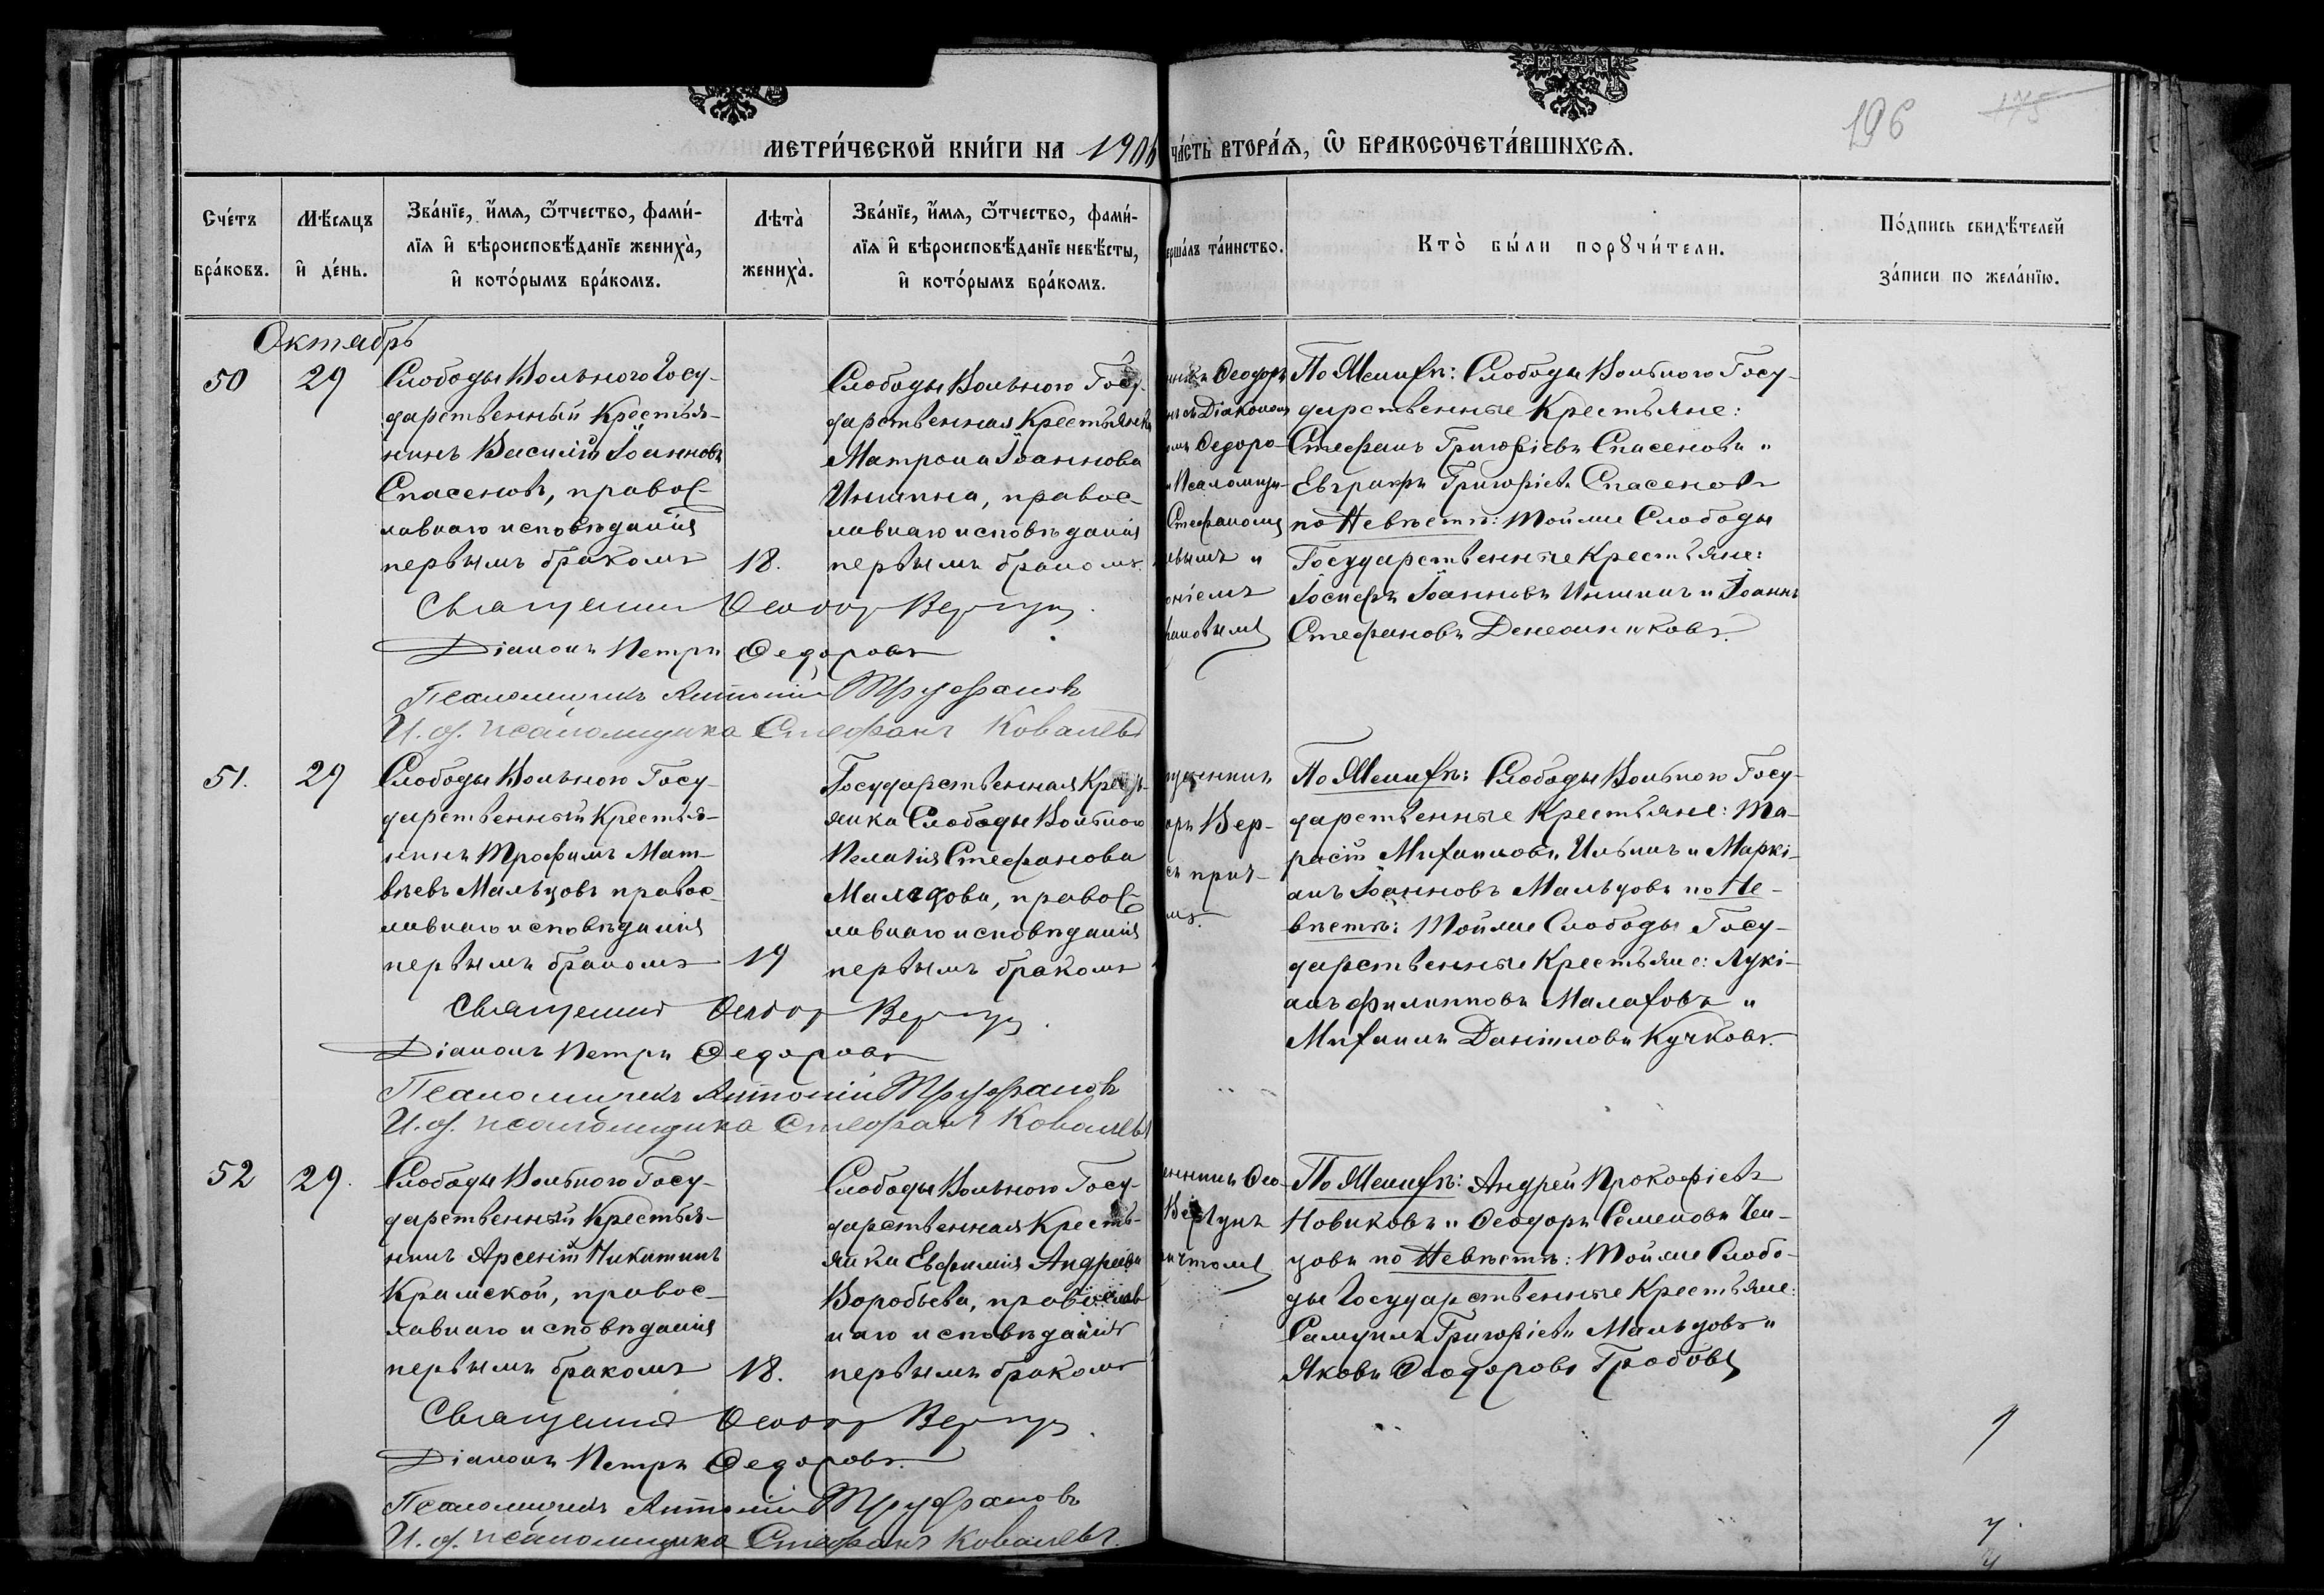 МЕТРИ́ЧЕСКОЙ КНИ́ГИ НА 190
ЧА́СТЬ ВТОРА́Ѧ, Ѡ҆ БРАКОСОЧЕТА́ВШИХСѦ.
196
175
Сче́тъ бра́ковъ.
Мѣ́сяцъ и҆ де́нь.
Зва́нїе, и҆́мя, ѻ҆́тчество, фами́-
лїя и҆ вѣроисповѣ́данїе жениха̀,
и҆ кото́рымъ бра́комъ.
Лѣта̀ жениха̀.
Зва́нїе, и҆́мя, ѻ҆́тчество, фами́-
лїя и҆ вѣроисповѣ́данїе невѣ́сты,
и҆ кото́рымъ бра́комъ.
ерша́лъ та́инство.
Кто̀ бы́ли порꙋчи́тели.
По́дпись свидѣ́телей
за́писи по жела́нїю.
Октябрь
50
29
Слободы Вольного Госу-
дарственный Крестья-
нинъ Василій Іоанновъ
Спасеновъ, правос-
лавнаго исповѣданія
первымъ бракомъ
18.
Слободы Вольного Госу-
дарственная Крестьянка
Матрона Іоаннова
Иншина, правос-
лавнаго исповѣданія
первымъ бракомъ.
никъ Ѳеодоръ
нъ съ Діакономъ
омъ Ѳедоро-
и Псаломщи-
Стефаномъ
евымъ и
оніемъ
фановымъ
По Женихѣ: Слободы Вольного Госу-
дарственные Крестьяне:
Стефанъ Григоріевъ Спасеновъ и
Евграфъ Григоріевъ Спасеновъ
по Невѣстѣ: тойже Слободы
Государственные Крестьяне:
Іосифъ Іоанновъ Иншинъ и Іоаннъ
Стефановъ Денежниковъ.
Священникъ Ѳеодоръ Вертунъ.
Діаконъ Петръ Ѳедоровъ
Псаломщикъ Антоній Труфановъ
И. д. псаломщика Стефанъ Ковалевъ
51.
29
Слободы Вольного Госу-
дарственный Крестья-
нинъ Трофимъ Мат-
вѣевъ Мальцовъ правос-
лавнаго исповѣданія
первымъ бракомъ
19
Государственная Кресть-
янка Слободы Вольного
Пелагія Стефанова
Малахова, правос-
лавнаго исповѣданія
первымъ бракомъ
щенникъ
оръ Вер-
съ прич-
мъ.
По Женихѣ: Слободы Вольного Госу-
дарственные Крестьяне: Та-
расій Михаиловъ Ильинъ и Маркі-
анъ Іоанновъ Мальцовъ по Не-
вѣстѣ: Тойже Слободы Госу-
дарственные Крестьяне: Лукі-
анъ Филипповъ Малаховъ и
Михаилъ Даніиловъ Кучковъ.
Священникъ Ѳеодоръ Вертунъ.
Діаконъ Петръ Ѳедоровъ
Псаломщикъ Антоній Труфановъ
И. д. псаломщика Стефанъ Ковалевъ
52
29.
Слободы Вольного Госу-
дарственный Крестья-
нинъ Арсеній Никитинъ
Крамской, правос-
лавнаго исповѣданія
первымъ бракомъ
18.
Слободы Вольного Госу-
дарственная Кресть-
янка Евфимія Андреева
Воробьева, православ
наго исповѣданія
первымъ бракомъ
енникъ Ѳео-
Вертунъ
ичтомъ
По Женихѣ: Андрей Прокофіевъ
Новиковъ и Ѳеодоръ Семеновъ
цовъ по Невѣстѣ: Тойже Слобо-
ды Государственные Крестьяне:
Самуилъ Григоріевъ Мальцовъ и
Яковъ Ѳеодоровъ Гробовъ
Священникъ Ѳеодоръ Вертунъ.
Діаконъ Петръ Ѳедоровъ.
Псаломщикъ Антоній Труфановъ
И. д. псаломщика Стефанъ Ковалевъ.